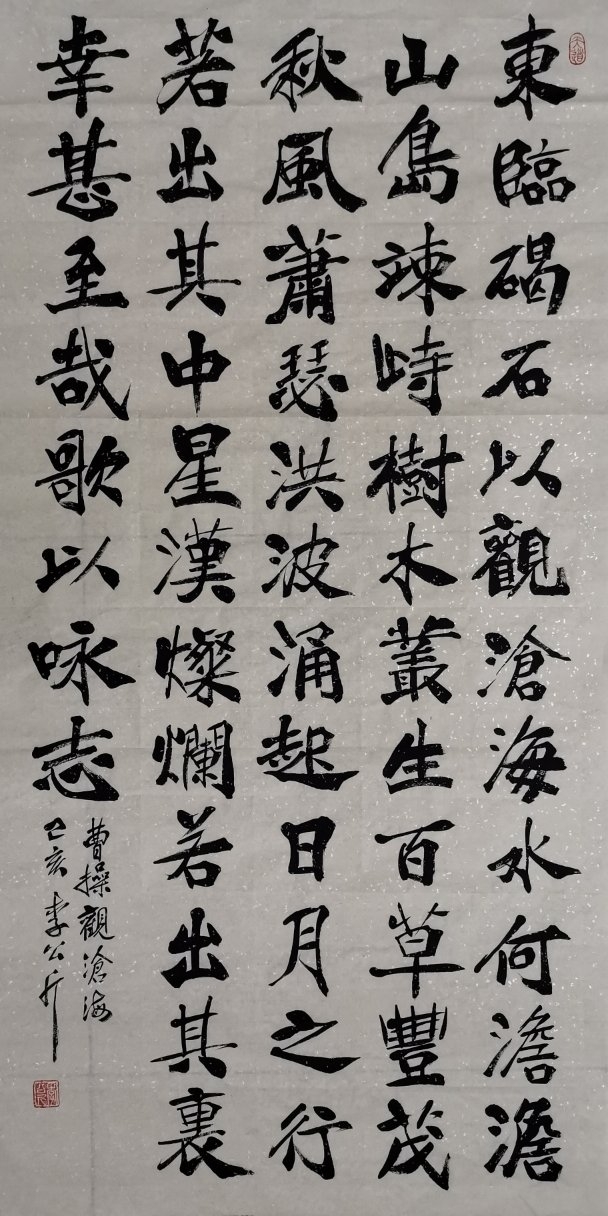 東臨碣石以觀滄海水何澹澹
山島竦峙樹木叢生百草豐茂
秋風蕭瑟洪波涌起日月之行
若出其中星漢燦爛若出其裏
幸甚至哉歌以咏志
曹操觀滄海
己亥李公斤